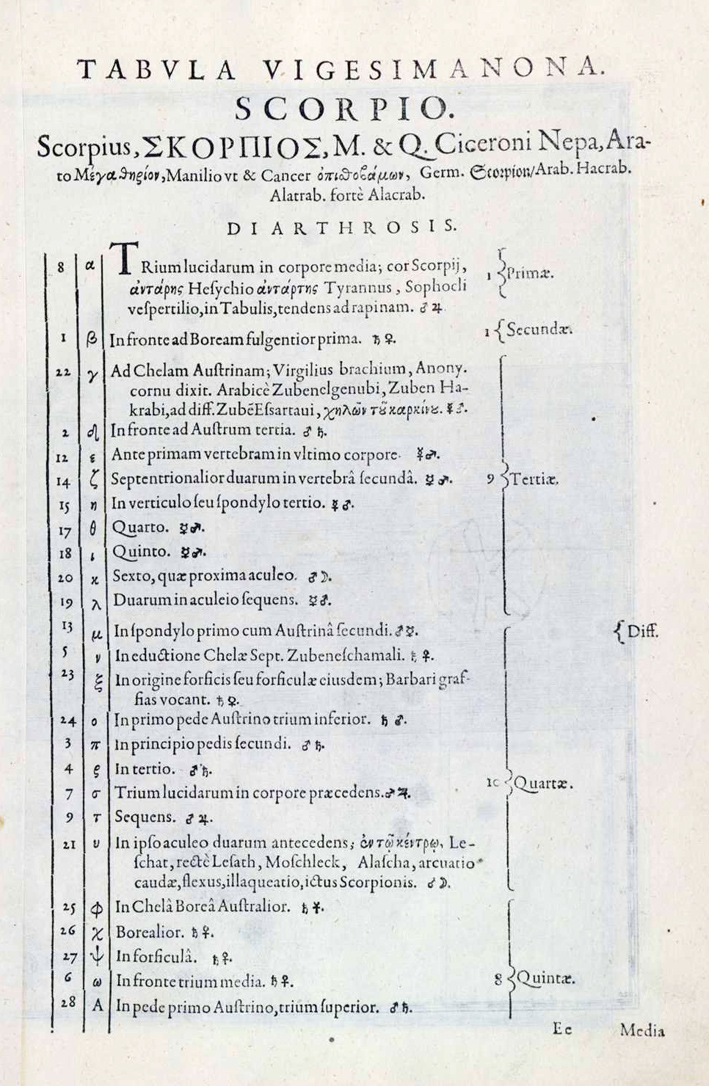 TABVLA VIGESIMANONA.
SCORPIO.
Scorpius, ΣΚΟΡΠΙΟΣ, M. & Q. Ciceroni Nepa, Ara-
to Μέγα θηρίον, Manilio vt & Cancer Germ. Scorpion/Arab. Hacrab.
Alatrab. fortè Alacrab.
DIARTHROSIS.
8 α TRium lucidarum in corpore media; cor Scorpij, 1 { Primæ.
ἀντάρης Heſychio ἀντάρτης Tyrannus, Sophocli
veſpertilio, in Tabulis, tendens ad rapinam. ♂ ♃.
1 β In fronte ad Boream fulgentior prima. ♄ ♀. 1 { Secundæ.
22 γ Ad Chelam Auſtrinam; Virgilius brachium, Anony.
cornu dixit. Arabicè Zubenelgenubi, Zuben Ha-
krabi, ad diff. Zubē Eſsartaui, χηλῶν τȣ͂ καρκίνȣ. ☿ ♂.
2 δ In fronte ad Auſtrum tertia. ♂ ♄.
12 ε Ante primam vertebram in vltimo corpore. ☿ ♂.
14 ζ Septentrionalior duarum in vertebrâ ſecundâ. ☿ ♂. 9 } Tertiæ.
15 η In verticulo ſeu ſpondylo tertio. ☿ ♂.
17 θ Quarto. ☿ ♂.
18 ι Quinto. ☿ ♂.
20 κ Sexto, quæ proxima aculeo. ♂ ☽.
19 λ Duarum in aculeio ſequens. ☿ ♂.
13 μ In ſpondylo primo cum Auſtrinâ ſecundi. ♂ ☿. { Diff.
5 ν In eductione Chelæ Sept. Zubeneſchamali. ♄ ♀.
23 ξ In origine forficis ſeu forficulæ eiusdem; Barbari graf-
fias vocant. ♄ ♀.
24 ο In primo pede Auſtrino trium inferior. ♄ ♂.
3 π In principio pedis ſecundi. ♂ ♄.
4 ρ In tertio. ♂ ♄.
7 σ Trium lucidarum in corpore præcedens. ♂ ♃. 10 } Quartæ.
9 τ Sequens. ♂ ♃.
21 υ In ipſo aculeo duarum antecedens; ἐν τῷ κέντρῳ, Le-
ſchat, rectè Leſath, Moſchleck, Alaſcha, arcuatio
caudæ, flexus, illaqueatio, ictus Scorpionis. ♂ ☽.
25 φ In Chelâ Boreâ Auſtralior. ♄ ☿.
26 χ Borealior. ♄ ♀.
27 ψ In forficulâ. ♄ ♀.
6 ω In fronte trium media. ♄ ♀. 8 } Quintæ.
28 A In pede primo Auſtrino, trium ſuperior. ♂ ♄.
Ee Media